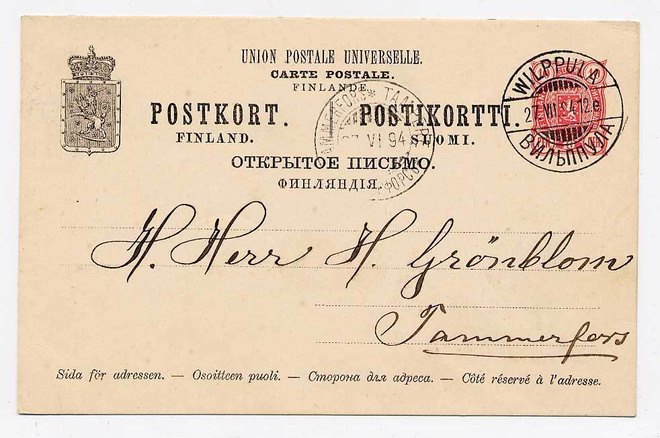 UNION POSTALE UNIVERSELLE.
CARTE POSTALE.
FINLANDE.
POSTKORT. POSTIKORTTI.
FINLAND. SUOMI.
ОТКРЫТОЕ ПИСЬМО.
ФИНЛЯНДІЯ.
WILPPULA
27 VI 94 12 e
ВИЛЬППУЛА
VI 94
H. Herr H. Grönblom
Tammerfors
Sida för adressen. — Osoitteen puoli. — Сторона для адреса. — Côté réservé à l'adresse.